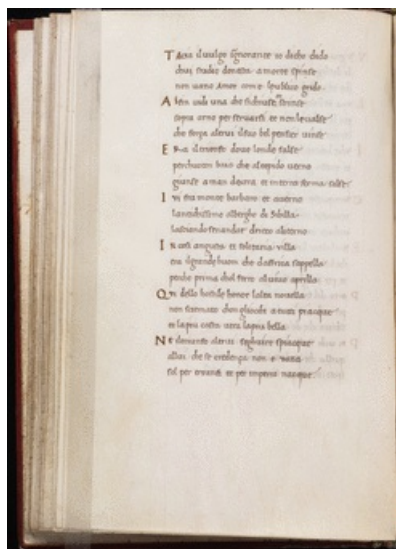 Tacia il vulgo ignorante io dicho dido
chui studio donesta a morte spinse
non vano Amor come il publico grido
Al fin vidi una che si chiuse e strinse
sopra arno per servarsi et non le valse
che forza altrui il suo bel pensier vinse
Era il trionfo dove londe salse
perchuoton baia che al tepido verno
giunse a man dextra et interra ferma salse
Indi fra monte barbaro et averno
lantichissimo albergho di Sibilla
lassando senandar dritto
In cosi angusta et solitaria villa
era il grande huom che daffrica sappella
perche prima chol ferro al vivo aprilla
Qui dello hostile honor lalta novella
non scemato chon gliocchi a tutti piacque
et la piu casta vera la piu bella
Ne il trionfo altrui seghuire spiacque
allui che se credenza non e vana
sol per trionfi et per imperii nacque